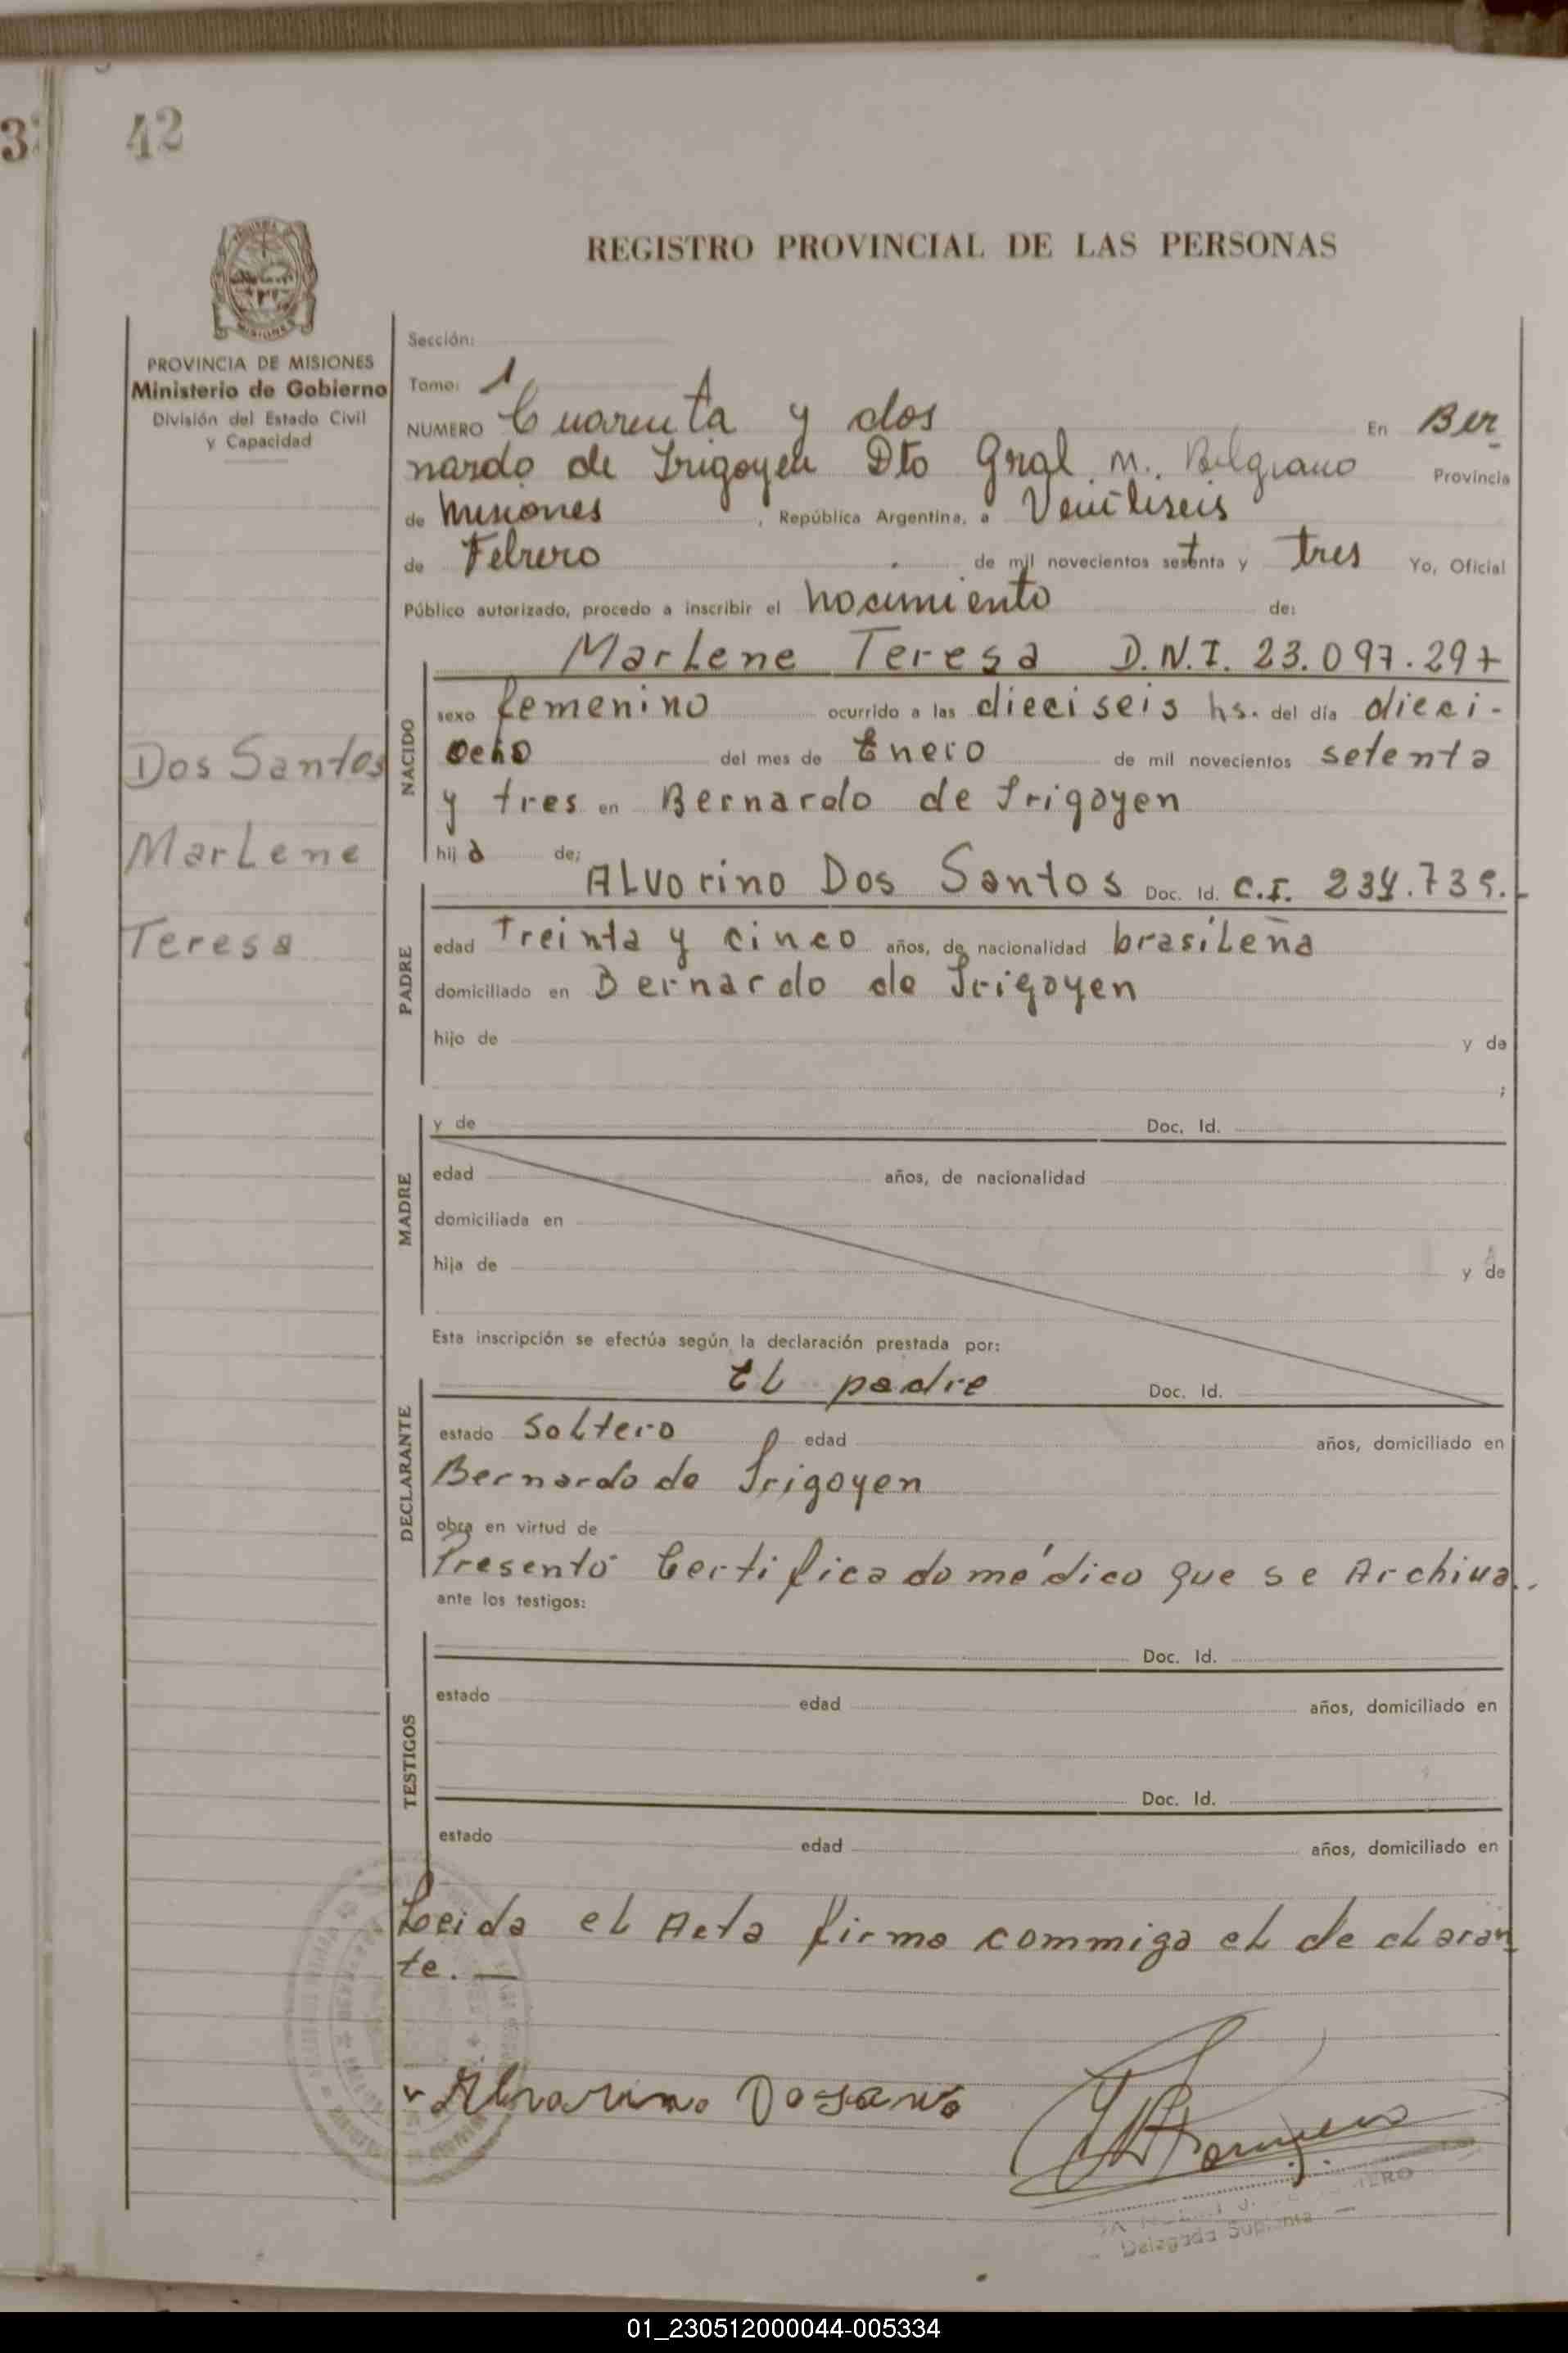 3
42
REGISTRO PROVINCIAL DE LAS PERSONAS
MISIONES
PROVINCIA DE MISIONES
Ministerio de Gobierno
División del Estado Civil
y Capacidad
Sección:
Tomo: 1
NUMERO Cuarenta y dos En Ber
nardo de Irigoyen Dto Gral M. Belgrano Provincia
de Misiones, República Argentina, a Veintiseis
de Febrero de mil novecientos setenta y tres Yo, Oficial
Público autorizado, procedo a inscribir el nacimiento de:
Marlene Teresa D.N.I. 23.097.297
NACIDO
sexo femenino ocurrido a las dieciseis hs. del día dieci-
ocho del mes de Enero de mil novecientos setenta
y tres en Bernardo de Irigoyen
hija de:
Dos Santos
Marlene
Teresa
PADRE
Alvorino Dos Santos Doc. Id. C.I. 234.735.-
edad treinta y cinco años, de nacionalidad brasileña
domiciliado en Bernardo de Irigoyen
hijo de y de
;
MADRE
y de Doc. Id.
edad años, de nacionalidad
domiciliada en
hija de y de
Esta inscripción se efectúa según la declaración prestada por:
DECLARANTE
El padre Doc. Id.
estado Soltero edad años, domiciliado en
Bernardo de Irigoyen
obra en virtud de
Presentó Certificado médico que se Archiva.
ante los testigos:
TESTIGOS
Doc. Id.
estado edad años, domiciliado en
Doc. Id.
estado edad años, domiciliado en
Leida el Acta firma commigo el declaran
te. —
Delegada Suplente
01_230512000044-005334